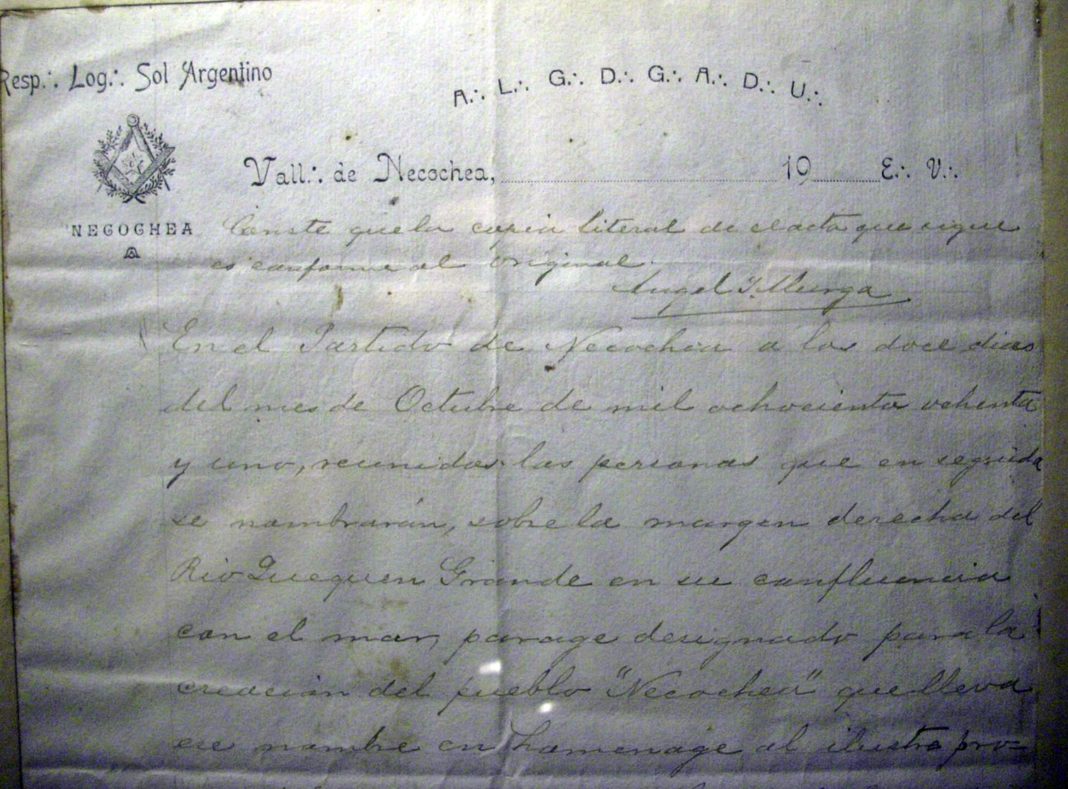 Resp∴ Log∴ Sol Argentino
A∴ L∴ G∴ D∴ G∴ A∴ D∴ U∴
Vall∴ de Necochea, 19 E∴ V∴
NECOCHEA
Conste que la copia literal de el acta que sigue
es conforme al original.
Angel I. Murga
En el Partido de Necochea a los doce dias
del mes de Octubre de mil ochociento ochenta
y uno, reunidos las personas que en seguida
se nombrarán, sobre la margen derecha del
Rio Quequen Grande en su confluencia
con el mar, parage designado para la
creación del pueblo "Necochea" que lleva
ese nombre en homenage al ilustre pro=